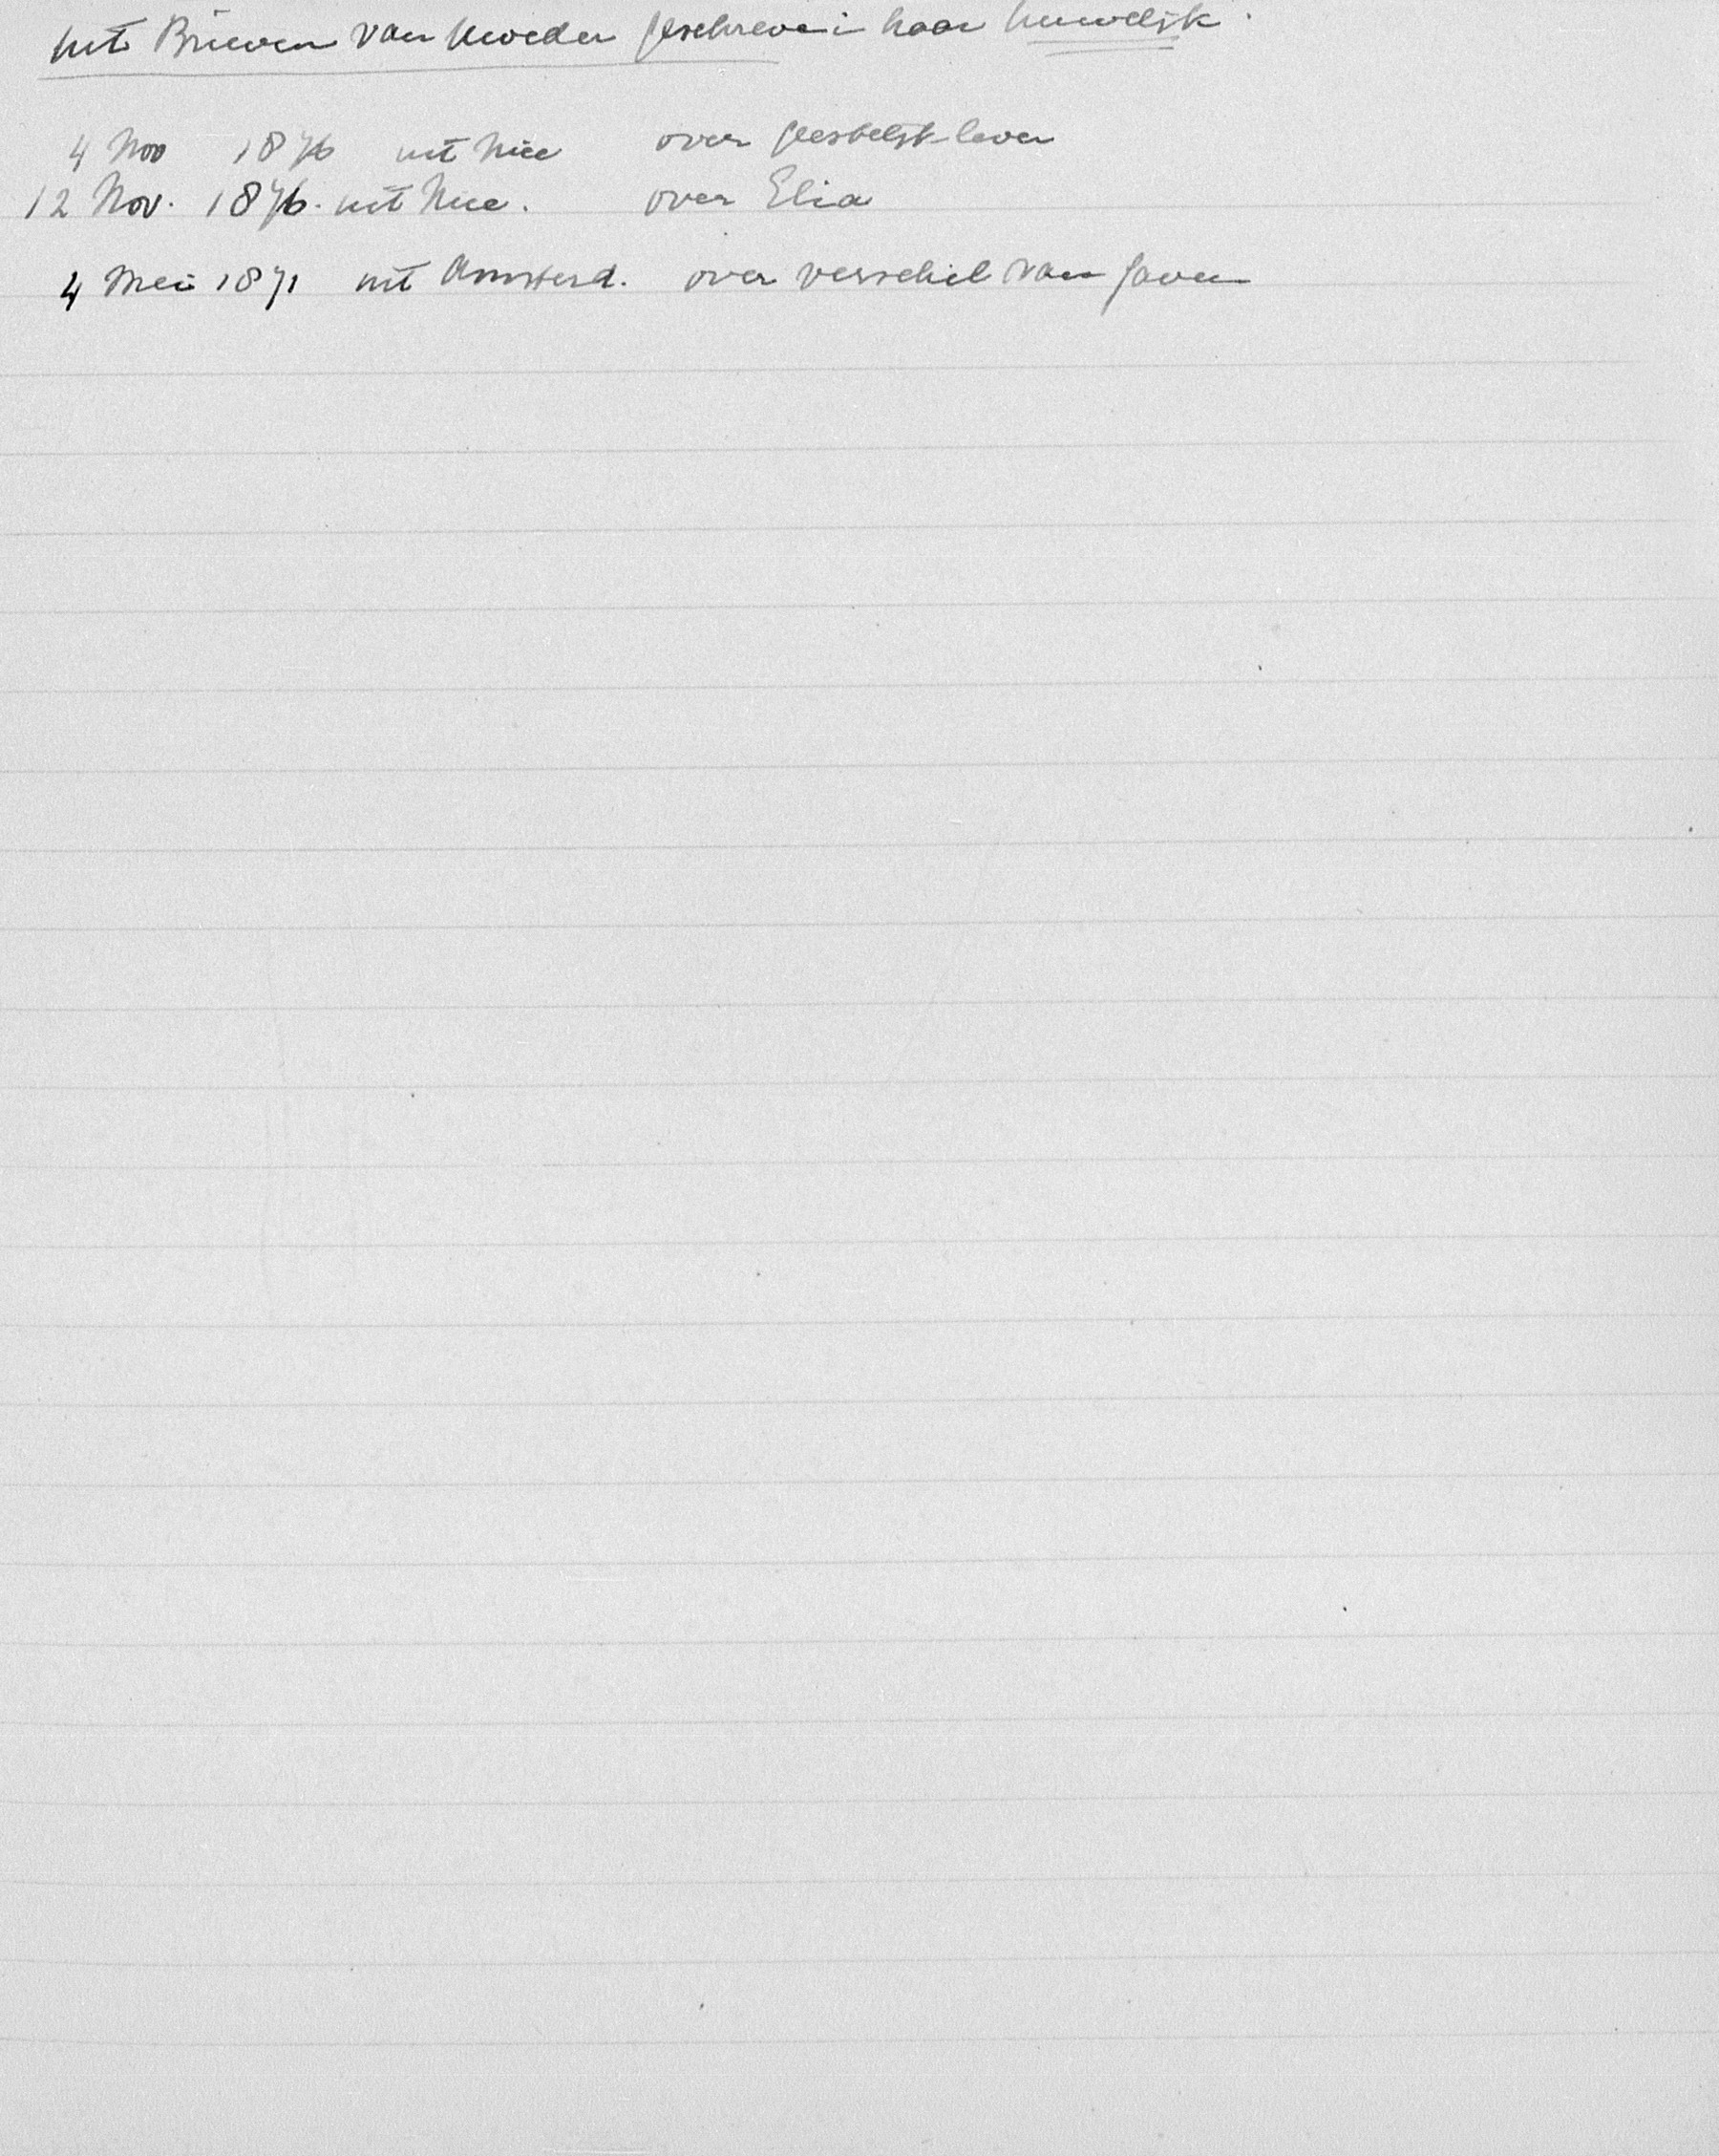 Uit Brieven van Moeder geschreven i haar huwelijk.
4 Nov 1876 uit Nice over geestelijk leven
12 Nov. 1876. uit Nice. over Elia
4 Mei 1871 uit Amsterd. over verschil van gaven